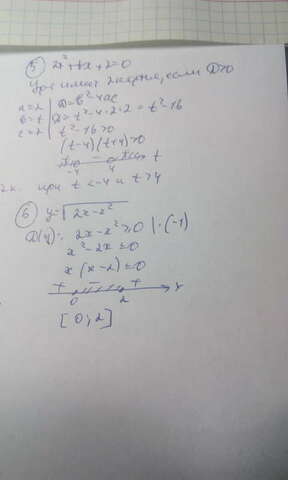 5 2x²+tx+2=0
Ур-е имеет 2 корня, если D>0
a=2 | D=b²-4ac
b=t | D=t²-4·2·2=t²-16
c=2 | t²-16>0
(t-4)(t+4)>0
+ - + t
-4 4
2к. при t<-4 и t>4
6 y=√2x-x²
D(y): 2x-x²≥0 |·(-1)
x²-2x≤0
x(x-2)≤0
+ - + x
0 2
[0;2]